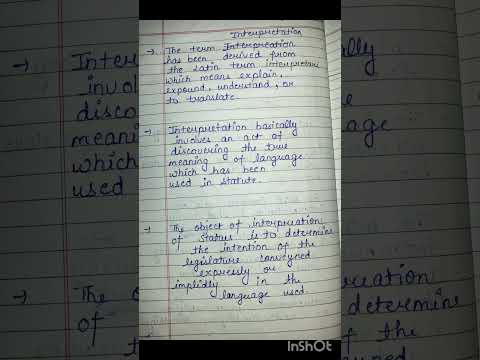 Interpretation
→ The term Interpreation
has been derived from
the latin term interpretari
which means explain,
expound, understand, or
to translate.
→ Interpretation basically
involves an act of
discovering the true
meaning of language
which has been
used in statute.
→ The object of interpreation
of Status is to determine
the intention of the
legislature conveyned
expressly or
implidly in the
language used.
InShOt